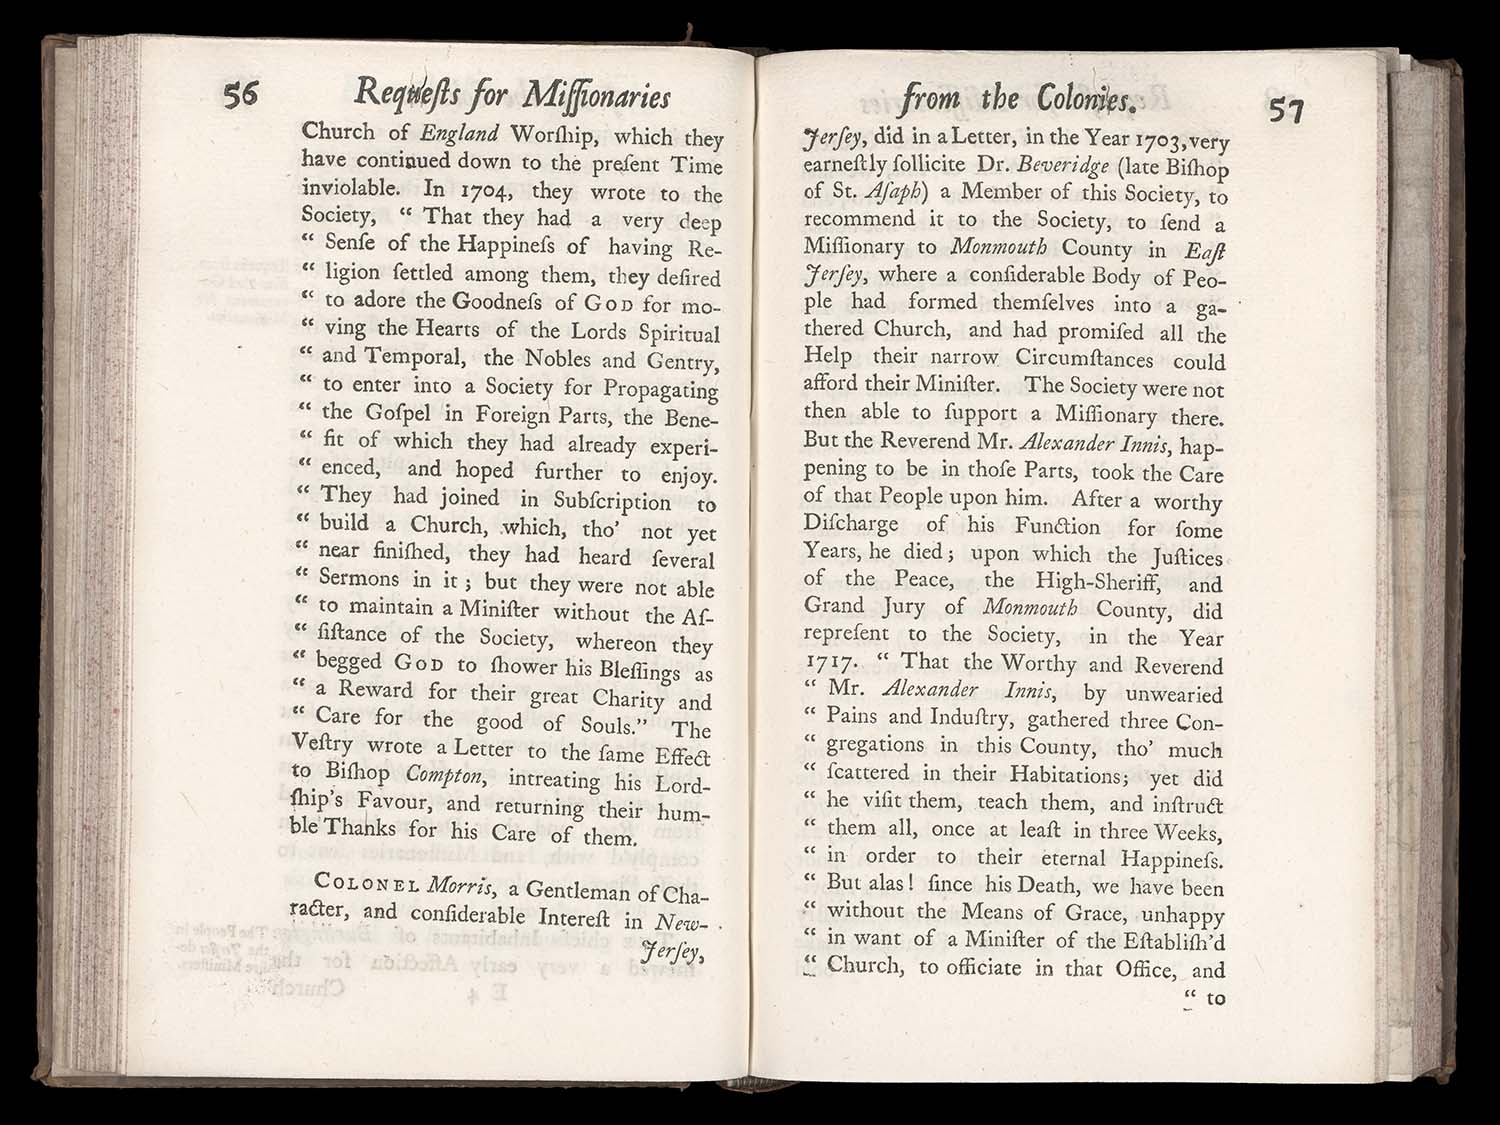 56 Requeſts for Miſſionaries
Church of England Worſhip, which they
have continued down to the preſent Time
inviolable. In 1704, they wrote to the
Society, “ That they had a very deep
“ Senſe of the Happineſs of having Re-
“ ligion ſettled among them, they deſired
“ to adore the Goodneſs of GOD for mo-
“ ving the Hearts of the Lords Spiritual
“ and Temporal, the Nobles and Gentry,
“ to enter into a Society for Propagating
“ the Goſpel in Foreign Parts, the Bene-
“ fit of which they had already experi-
“ enced, and hoped further to enjoy.
“ They had joined in Subſcription to
“ build a Church, which, tho’ not yet
“ near finiſhed, they had heard ſeveral
“ Sermons in it ; but they were not able
“ to maintain a Miniſter without the Aſ-
“ ſiſtance of the Society, whereon they
“ begged GOD to ſhower his Bleſſings as
“ a Reward for their great Charity and
“ Care for the good of Souls.” The
Veſtry wrote a Letter to the ſame Effect
to Biſhop Compton, intreating his Lord-
ſhip’s Favour, and returning their hum-
ble Thanks for his Care of them.
COLONEL Morris, a Gentleman of Cha-
racter, and conſiderable Intereſt in New-
Jerſey,
from the Colonies. 57
Jerſey, did in a Letter, in the Year 1703, very
earneſtly ſollicite Dr. Beveridge (late Biſhop
of St. Aſaph) a Member of this Society, to
recommend it to the Society, to ſend a
Miſſionary to Monmouth County in Eaſt
Jerſey, where a conſiderable Body of Peo-
ple had formed themſelves into a ga-
thered Church, and had promiſed all the
Help their narrow Circumſtances could
afford their Miniſter. The Society were not
then able to ſupport a Miſſionary there.
But the Reverend Mr. Alexander Innis, hap-
pening to be in thoſe Parts, took the Care
of that People upon him. After a worthy
Diſcharge of his Function for ſome
Years, he died ; upon which the Juſtices
of the Peace, the High-Sheriff, and
Grand Jury of Monmouth County, did
repreſent to the Society, in the Year
1717. “ That the Worthy and Reverend
“ Mr. Alexander Innis, by unwearied
“ Pains and Induſtry, gathered three Con-
“ gregations in this County, tho’ much
“ ſcattered in their Habitations; yet did
“ he viſit them, teach them, and inſtruct
“ them all, once at leaſt in three Weeks,
“ in order to their eternal Happineſs.
“ But alas ! ſince his Death, we have been
“ without the Means of Grace, unhappy
“ in want of a Miniſter of the Eſtabliſh’d
“ Church, to officiate in that Office, and
“ to